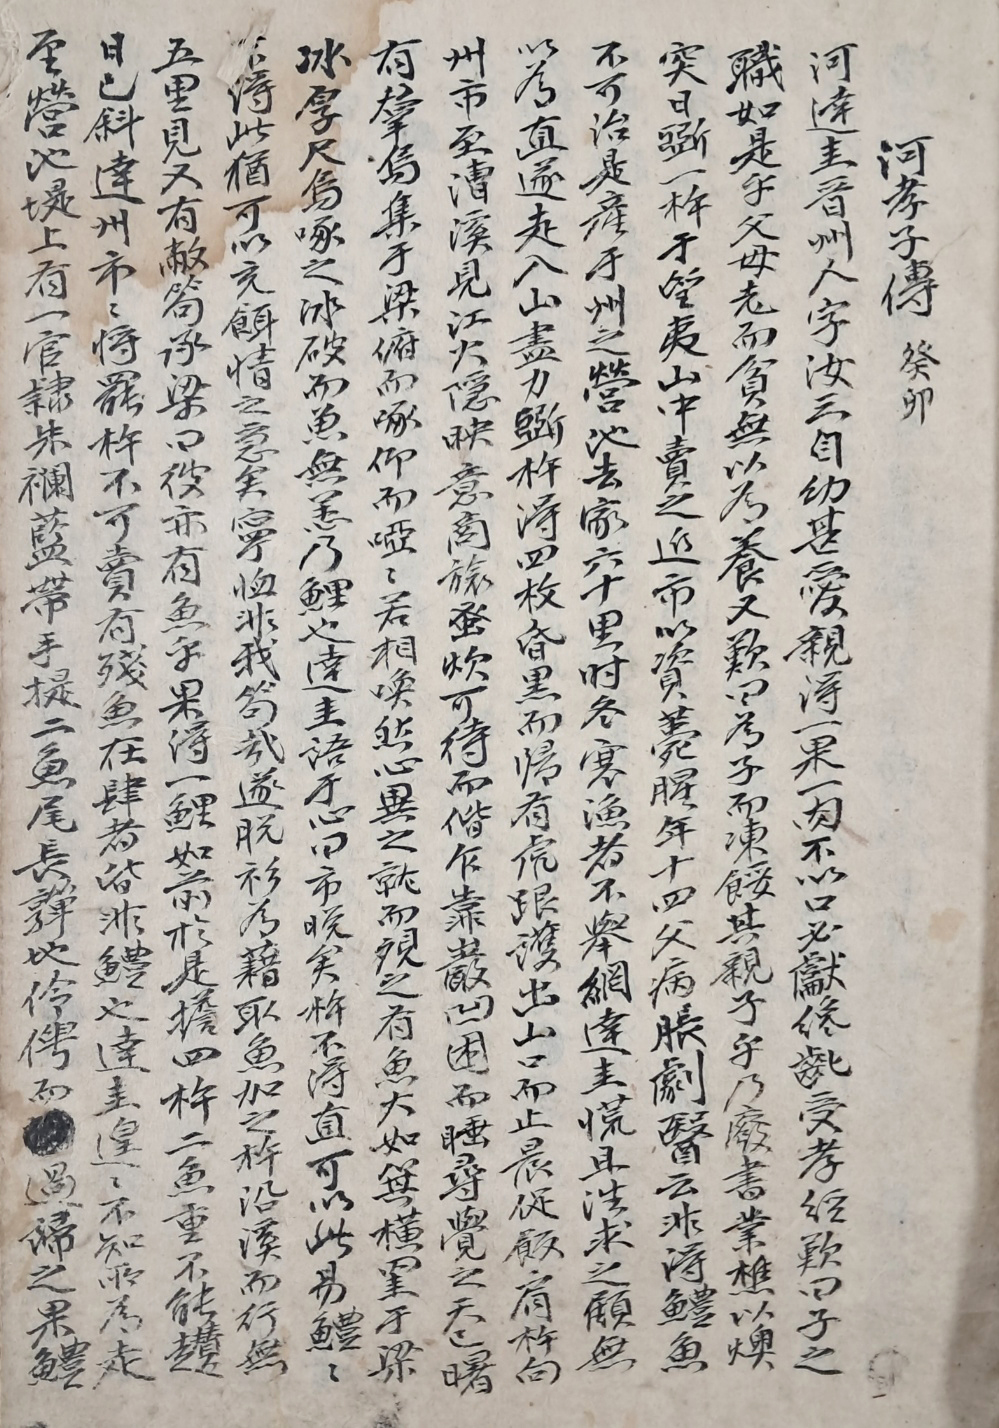 河孝子傳 癸卯
河達圭晋州人字汝三自幼甚愛親得一果一肉不以口必獻終齔受孝經歎曰子之
職如是乎父母老而貧無以爲養又歎曰爲子而凍餒其親子乎乃廢書業樵以燠
突日斲一杵于望夷山中賣之近市以資薨腥年十四父病脹劇醫云非得鱧魚
不可治是産于州之營池去家六十里时冬寒漁者不擧網達圭慌且浩求之顧無
以爲直遂走入山盡力斲杵得四枚昏黑而歸有虎踉護出山口而止晨促飯肩杵向
州市至漕溪見江火隱映意商旅蚤炊可待而偕乍靠巖凹困而睡尋覺之天已曙
有羣烏集于梁俯而啄仰而啞〻若相喚然心異之就而覘之有魚大如箕橫罣于梁
冰厚尺烏啄之冰破而魚無恙乃鯉也達圭語于心曰市晩矣杵不得直可以此易鱧〻
不得此猶可以充餌情之急矣寧恤非我笱哉遂脫衫爲藉取魚加之杵沿溪而行無
五里見又有敝笱承梁曰彼亦有魚乎果得一鯉如前於是擔四杵二魚重不能趲
日已斜達州市〻將罷杵不可賣有殘魚在肆者皆非鱧也達圭遑〻不知所爲走
至營池堤上有一官隷朱襴藍帶手提二魚尾長嚲地伶俜而過歸之果鱧